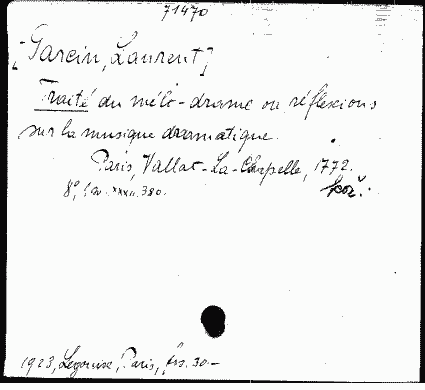 71470
[Garcin, Laurent]
Traité du mélo-drame ou réflexions
sur la musique dramatique.
Paris, Vallat-La-Chapelle, 1772.
8°, XXXII. 380.
1923, Paris, frs. 30.-